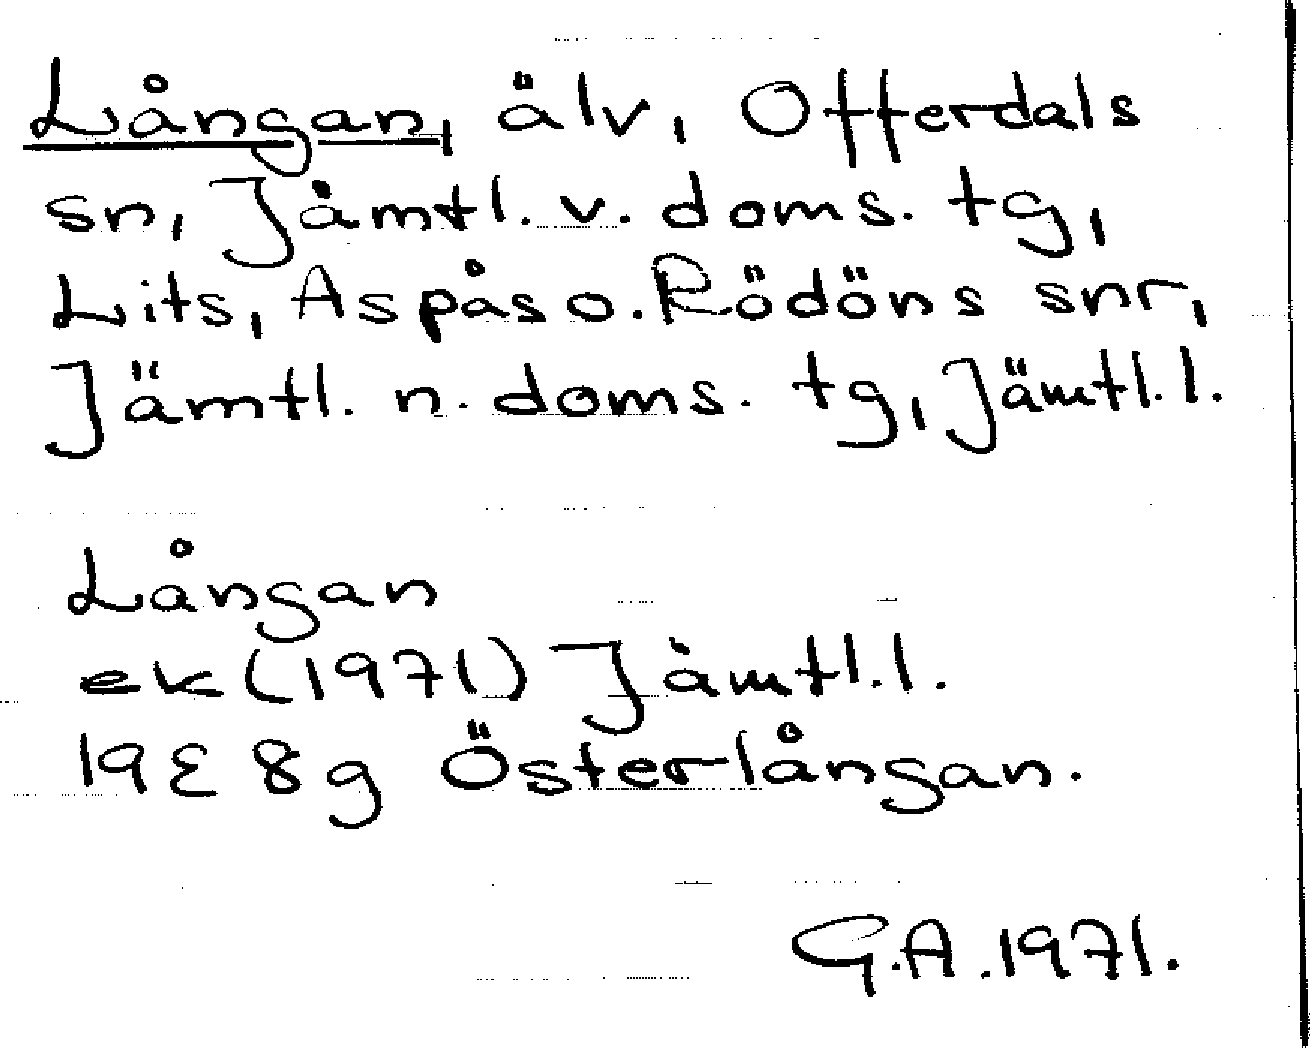 Långan, älv, Offerdals
sn, Jämtl. v. doms. tg,
Lits, Aspås o. Rödöns snr,
Jämtl. n. doms. tg, Jämtl. l.
Långan
ek (1971) Jämtl. l.
19E 8g Österlångan.
G.A. 1971.